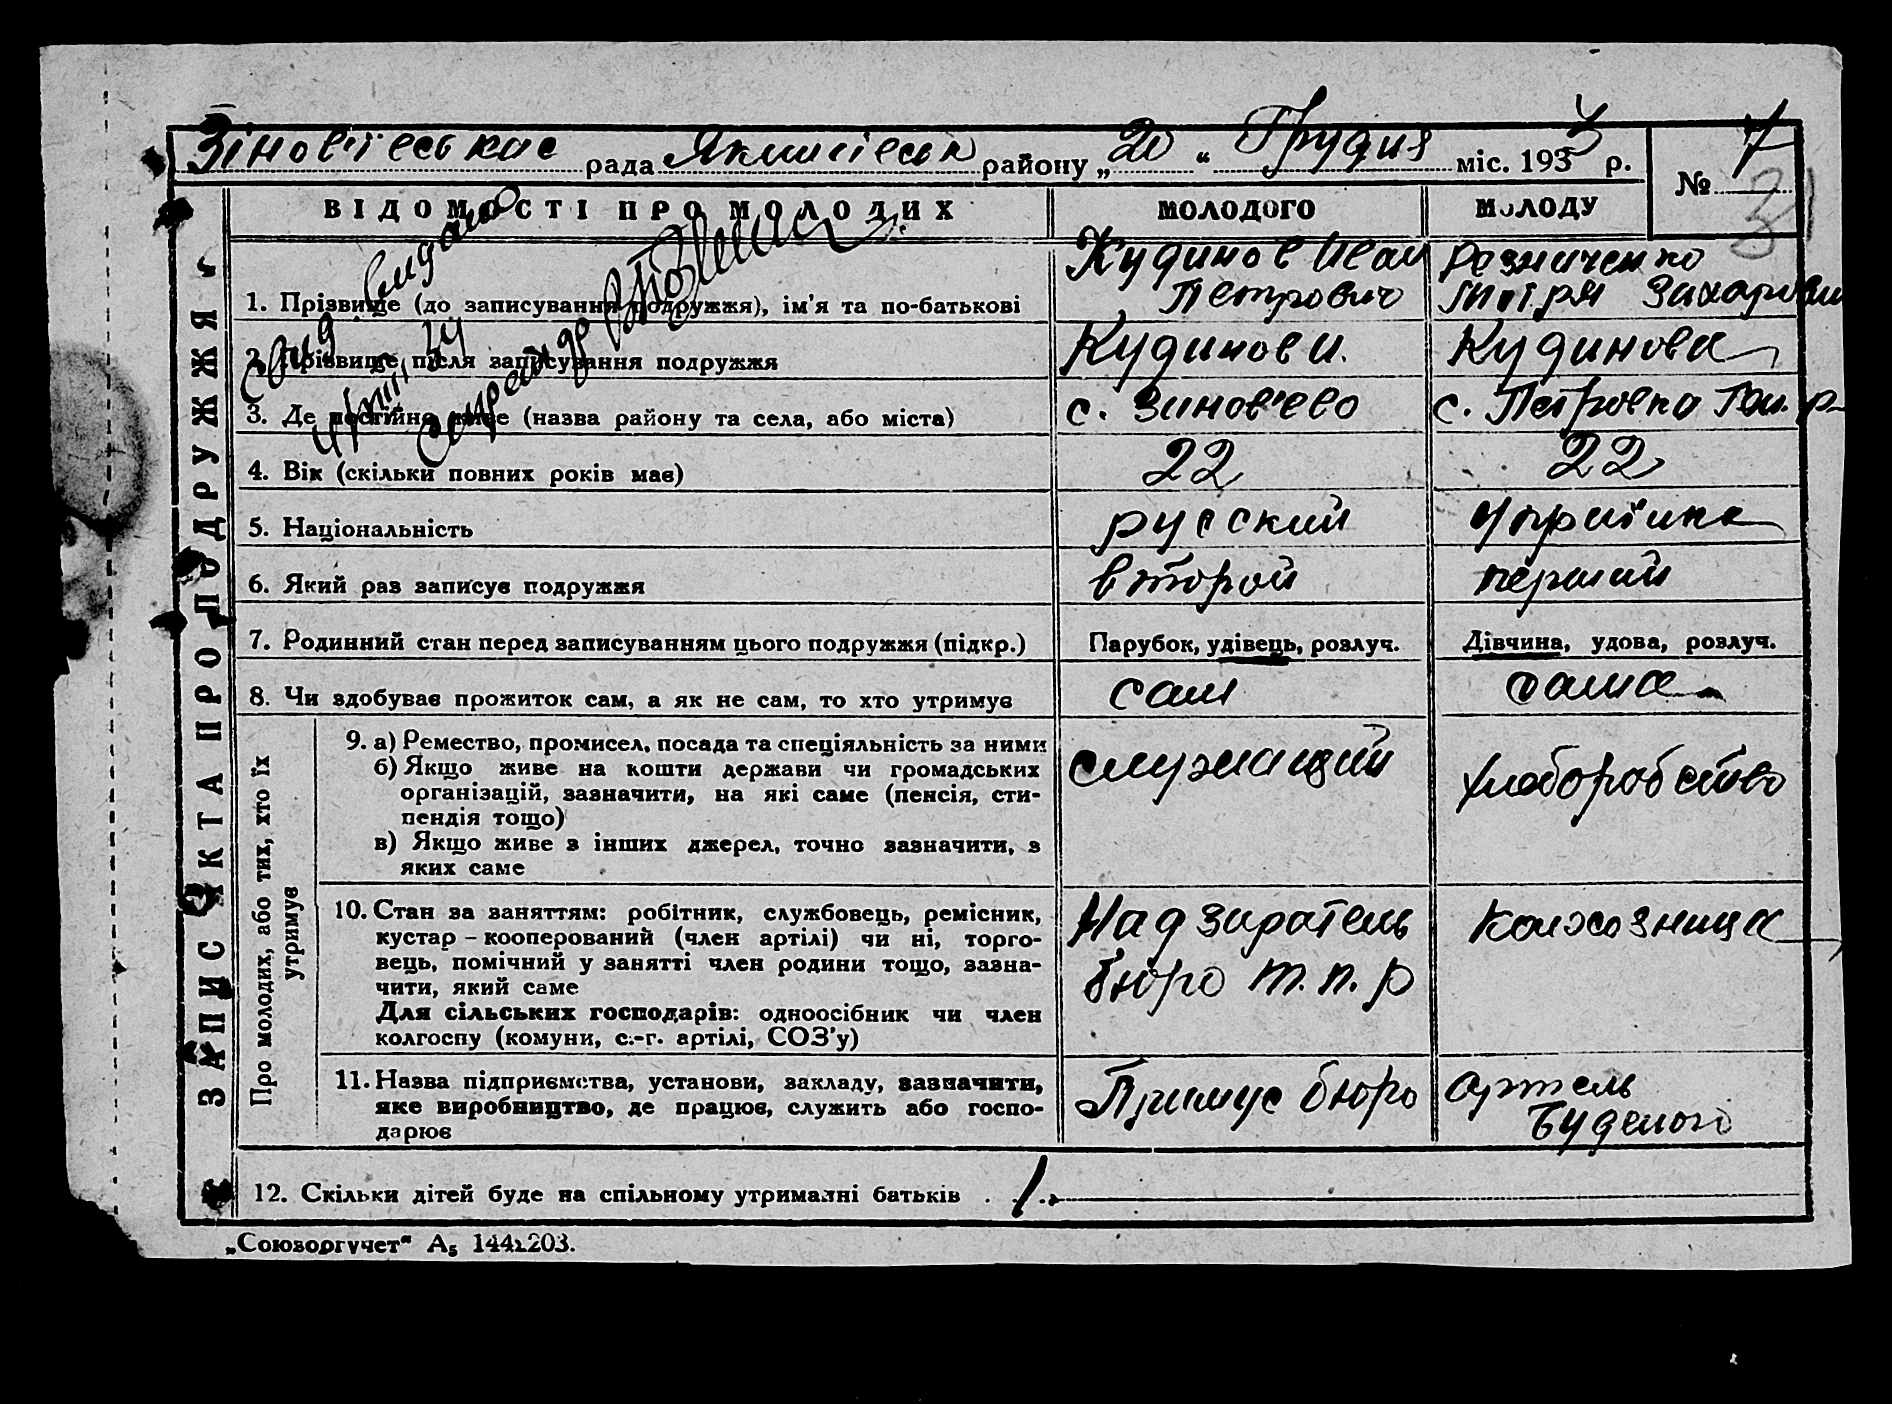 рада району „20“ Грудня міс. 1933 р.
№ 7
31
ЗАПИС АКТА ПРО ПОДРУЖЖЯ
ВІДОМОСТІ ПРО МОЛОДИХ МОЛОДОГО МОЛОДУ
1. Прізвище (до записування подружжя), ім'я та по-батькові
Кудинов Иван
Петрович
Резниченко
2. Прізвище після записування подружжя Кудинов И. Кудинова
3. Де постійно живе (назва району та села, або міста) с. Зинов'ево с. Петровка
4. Вік (скільки повних років має) 22 22
5. Національність русский украінка
6. Який раз записує подружжя второй перший
7. Родинний стан перед записуванням цього подружжя (підкр.) Парубок, удівець, розлуч. Дівчина, удова, розлуч.
8. Чи здобуває прожиток сам, а як не сам, то хто утримує сам сама
Про молодих, або тих, хто їх
утримує
9. а) Ремество, промисел, посада та спеціяльність за ними
б) Якщо живе на кошти держави чи громадських
організацій, зазначити, на які саме (пенсія, сти-
пендія тощо)
в) Якщо живе з інших джерел, точно зазначити, з
яких саме
служащий хлеборобство
10. Стан за заняттям: робітник, службовець, ремісник,
кустар – кооперований (член артілі) чи ні, торго-
вець, помічний у занятті член родини тощо, зазна-
чити, який саме
Для сільських господарів: одноосібник чи член
колгоспу (комуни, с.-г. артілі, СОЗ'у)
Надзиратель
бюро т.п.р
колхозница
11. Назва підприємства, установи, закладу, зазначити,
яке виробництво, де працює, служить або госпо-
дарює
бюро
артель
12. Скільки дітей буде на спільному утриманні батьків . 1.
„Союзоргучет“